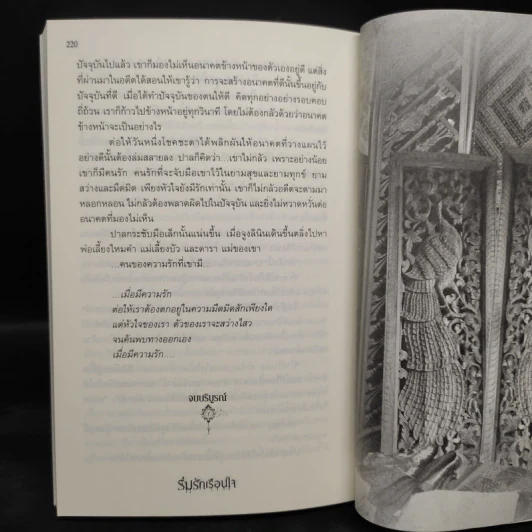 220
ปัจจุบันไปแล้ว เขาก็มองไม่เห็นอนาคตข้างหน้าของตัวเองอยู่ดี แต่สิ่ง
ที่ผ่านมาในอดีตได้สอนให้เขารู้ว่า การจะสร้างอนาคตที่ดีนั้นขึ้นอยู่กับ
ปัจจุบันที่ดี เมื่อได้ทำปัจจุบันของตนให้ดี คิดทุกอย่างอย่างรอบคอบ
ถี่ถ้วน เราก็ก้าวไปข้างหน้าอยู่ทุกวินาที โดยไม่ต้องกลัวด้วยว่าอนาคต
ข้างหน้าจะเป็นอย่างไร
ต่อให้วันหนึ่งโชคชะตาได้พลิกผันให้อนาคตที่วางแผนไว้
อย่างดีนั้นต้องล่มสลายลง ปาลก็คิดว่า...เขาไม่กลัว เพราะอย่างน้อย
เขาก็มีคนรัก คนรักที่จะจับมือเขาไว้ในยามสุขและยามทุกข์ ยาม
สว่างและมืดมิด เพียงหัวใจยังมีรักเท่านั้น เขาก็ไม่กลัวอดีตจะตามมา
หลอกหลอน ไม่กลัวต้องพลาดผิดไปในปัจจุบัน และยิ่งไม่หวาดหวั่นต่อ
อนาคตที่มองไม่เห็น
ปาลกระชับมือเล็กนั้นแน่นขึ้น เมื่อจูงลินินเดินขึ้นตลิ่งไปหา
พ่อเลี้ยงไหมคำ แม่เลี้ยงบัว และดารา แม่ของเขา
...คนของความรักที่เขามี...
...เมื่อมีความรัก
ต่อให้เราต้องตกอยู่ในความมืดมิดสักเพียงใด
แต่หัวใจของเรา ตัวของเราจะสว่างไสว
จนค้นพบทางออกเอง
เมื่อมีความรัก....
จบบริบูรณ์
ริมรักเรือนใจ